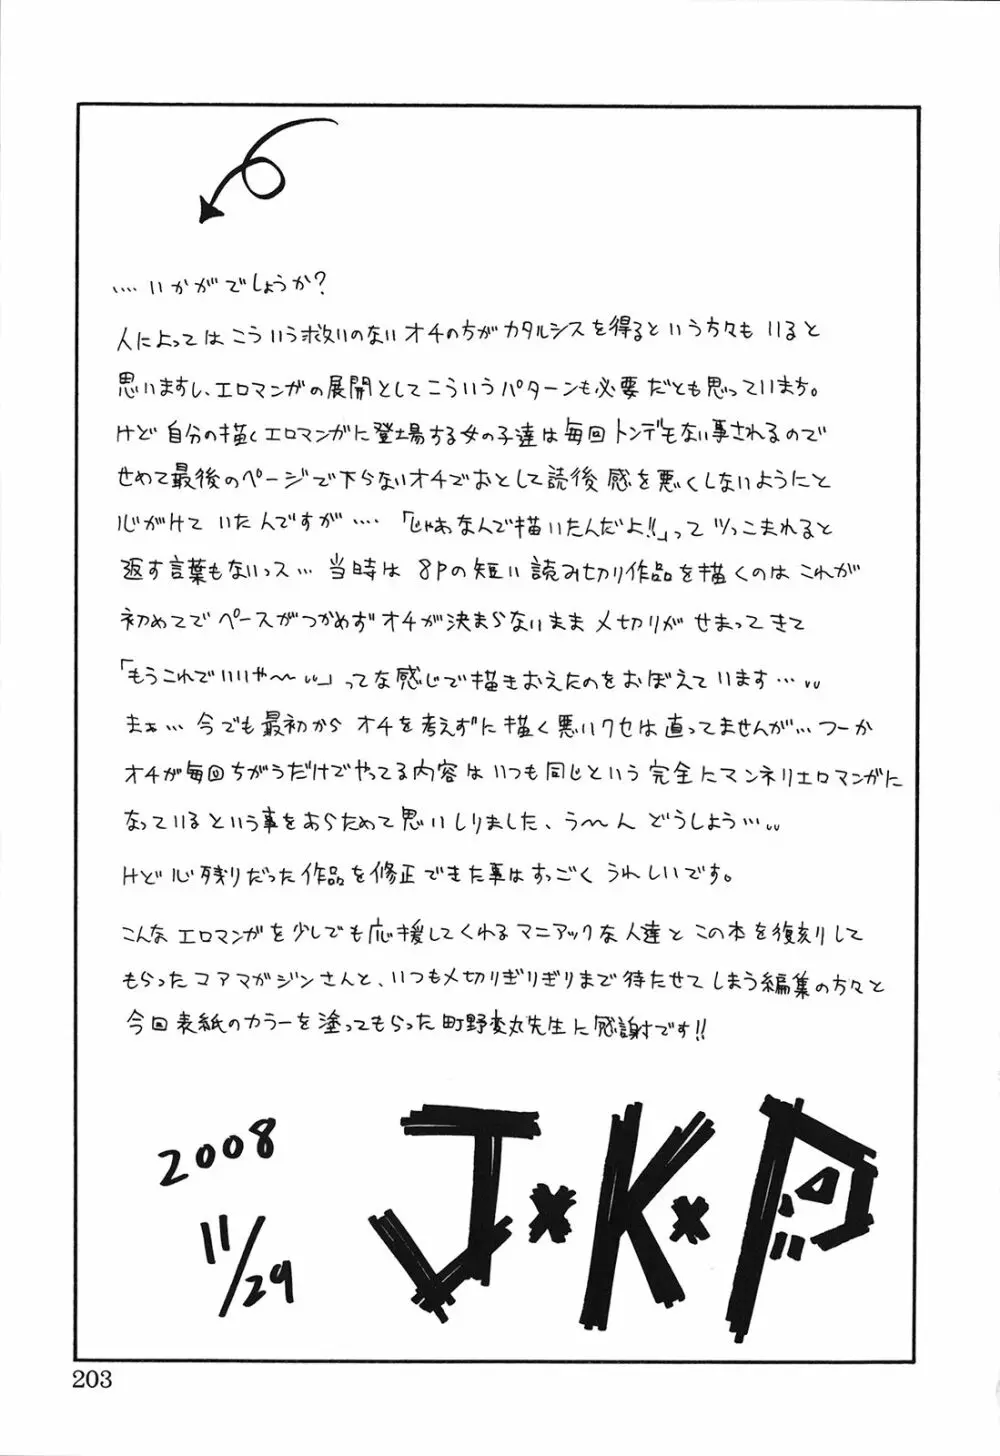 ....いかがでしょうか?
人によってはこういう救いのないオチの方がカタルシスを得るという方々もいると
思いますし、エロマンガの展開としてこういうパターンも必要だとも思っていまます。
けど自分の描くエロマンガに登場する女の子達は毎回トンデもない事されるので
せめて最後のページで下らないオチでおとして読後感を悪くしないようにと
心がけていたんですが....「じゃあなんで描いたんだよ!!」ってツっこまれると
返す言葉もないっス...当時は8Pの短い読み切り作品を描くのはこれが
初めてでペースがつかめずオチが決まらないままメ切りがせまってきて
「もうこれでいいや〜〜」ってな感じで描きおえたのをおぼえています...
まぁ...今でも最初からオチを考えずに描く悪いクセは直ってませんが...つーか
オチが毎回ちがうだけでやってる内容はいつも同じという完全にマンネリエロマンガに
なっているという事をあらためて思いしりました、う〜〜ん どうしよう...
けど心残りだった作品を修正できた事はすっごくうれしいです。
こんなエロマンガを少しでも応援してくれるマニアックな人達とこの本を復刻して
もらったコアマガジンさんと、いつもメ切りぎりぎりまで待たせてしまう編集の方々と
今回表紙のカラーを塗ってもらった町野変丸先生に感謝です!!
2008
11/29
J×K×P
203